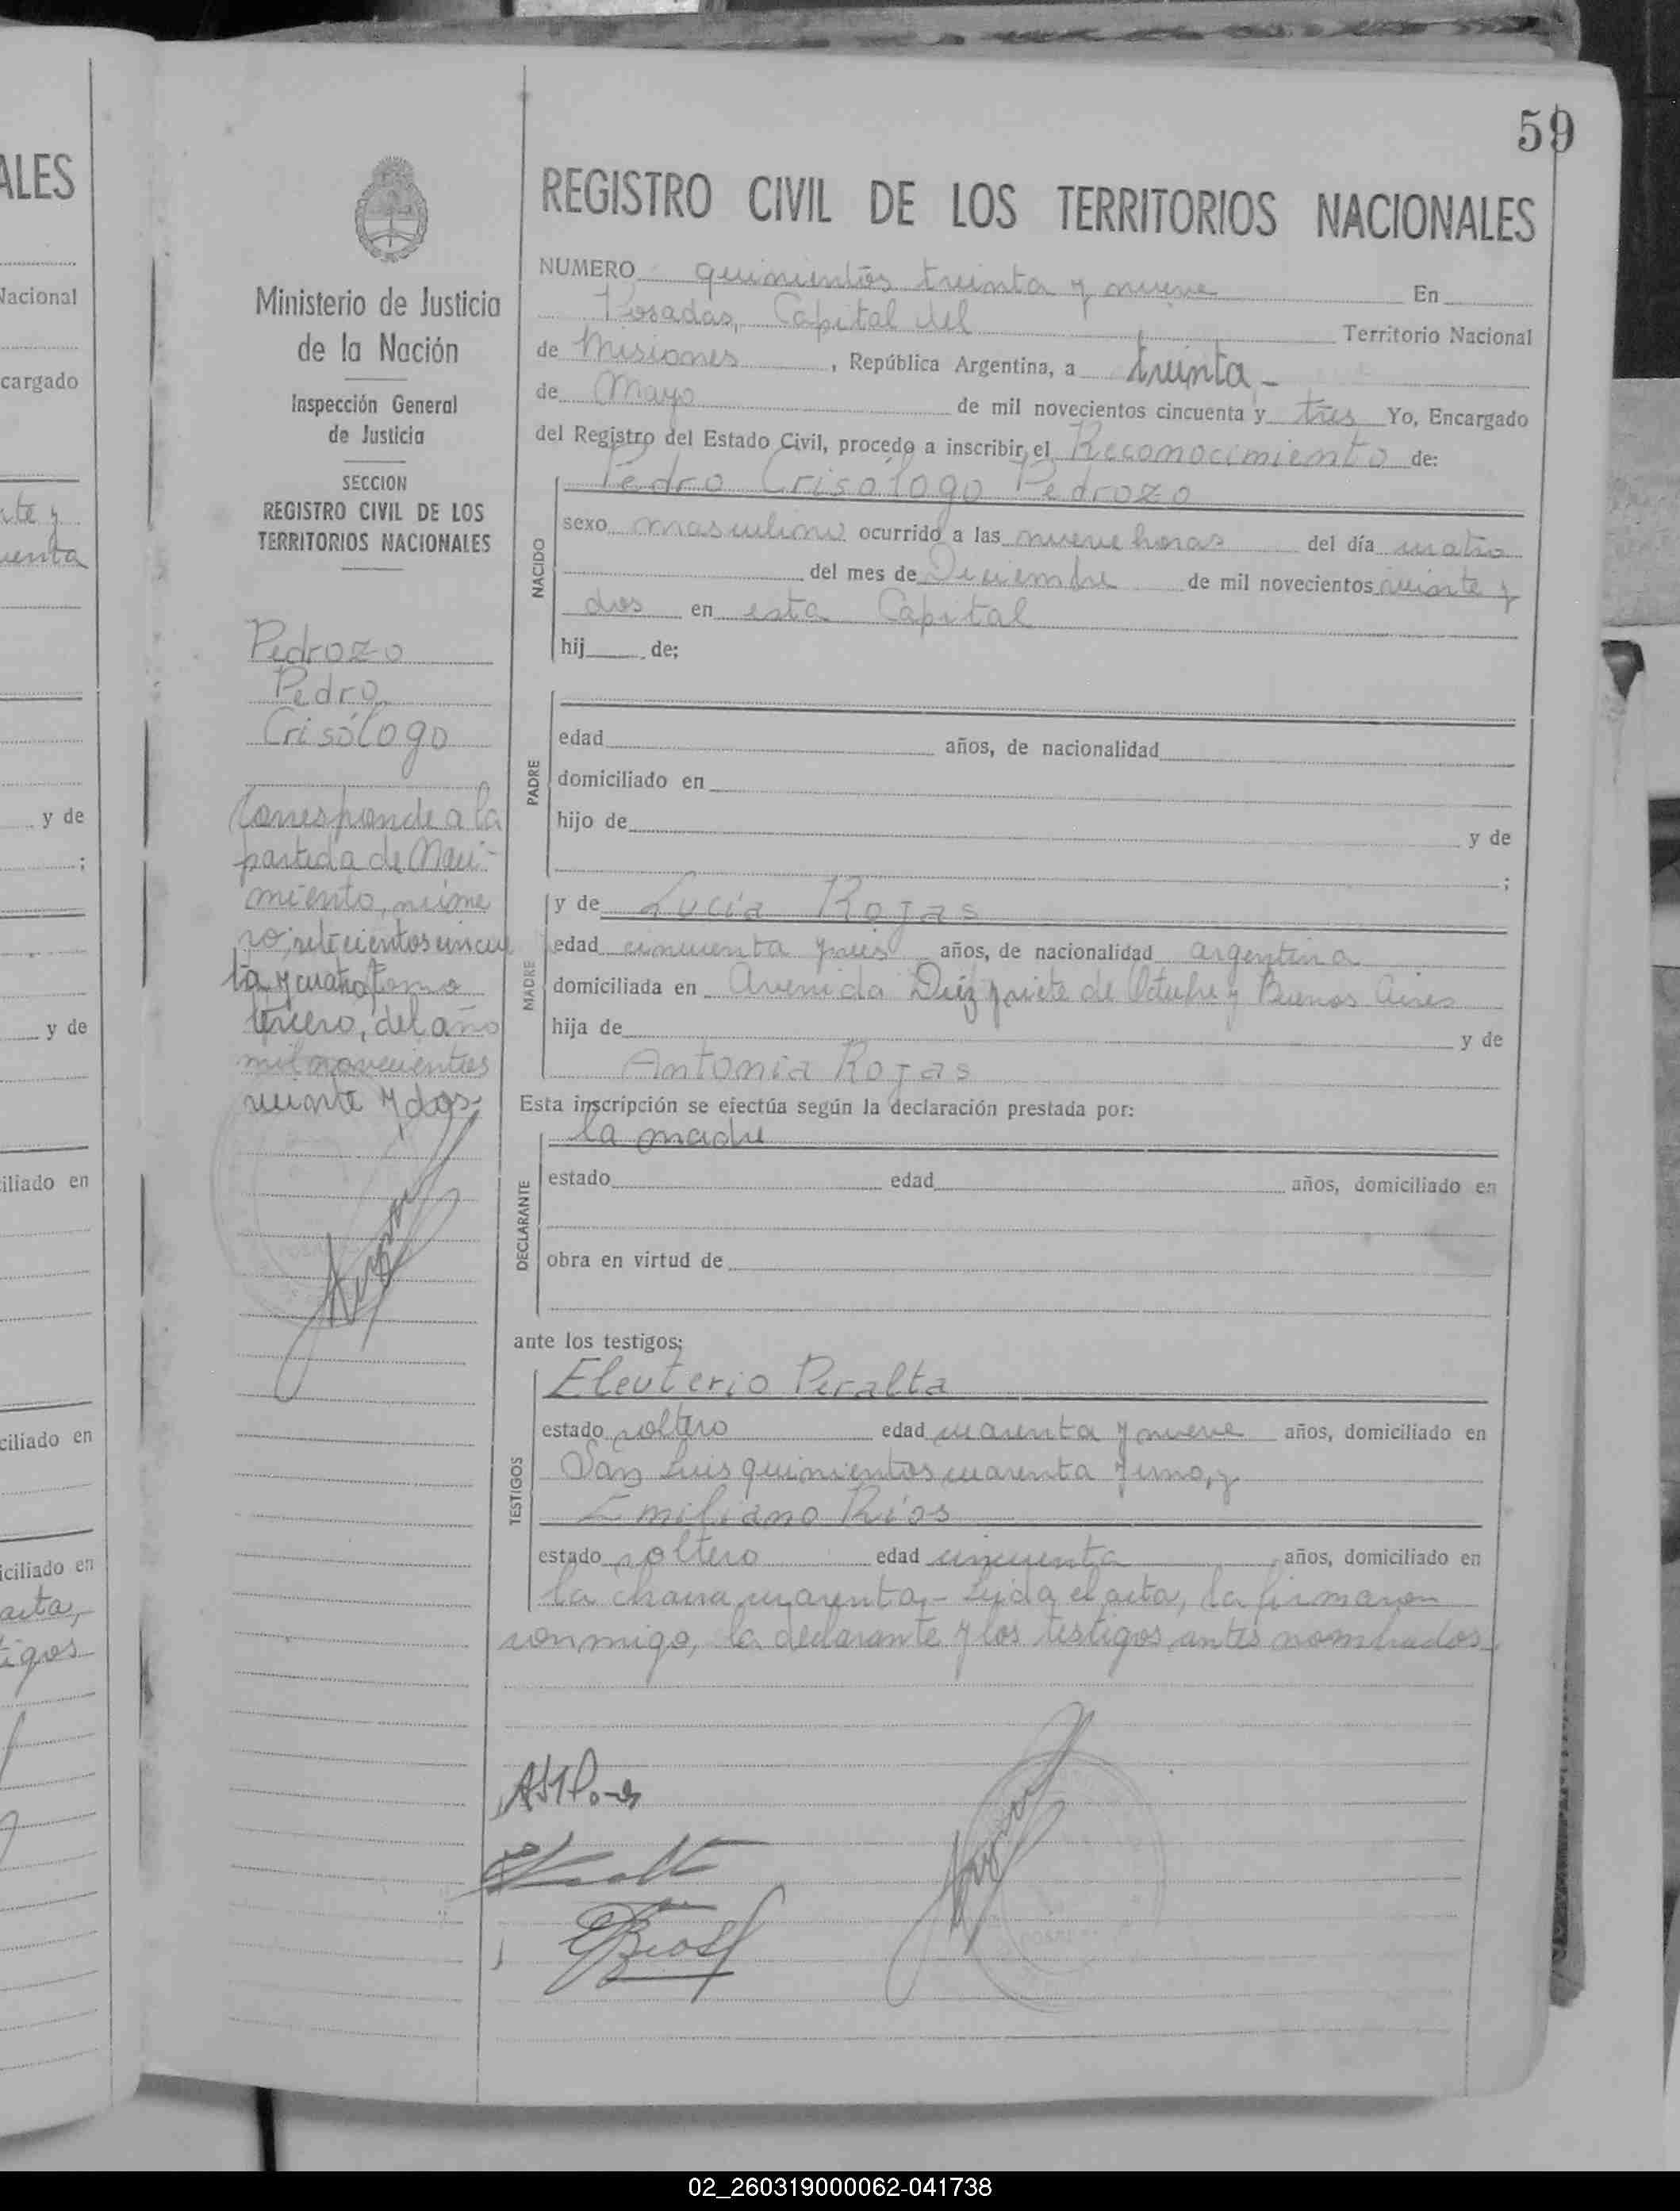 59
REGISTRO CIVIL DE LOS TERRITORIOS NACIONALES
Ministerio de Justicia
de la Nación
Inspección General
de Justicia
SECCION
REGISTRO CIVIL DE LOS
TERRITORIOS NACIONALES
Pedrozo
Pedro
Crisólogo
Corresponde a la
partida de Naci-
miento, núme
ro, setecientos cincuen
ta y cuatro, tomo
tercero, del año
mil novecientos
veinte y dos.
NUMERO quinientos treinta y nueve En
Posadas, Capital del Territorio Nacional
de Misiones, República Argentina, a treinta-
de Mayo de mil novecientos cincuenta y tres Yo, Encargado
del Registro del Estado Civil, procedo a inscribir, el Reconocimiento de:
Pedro Crisólogo Pedrozo
NACIDO
sexo masculino ocurrido a las nueve horas del día cuatro
del mes de Diciembre de mil novecientos veinte y
dos en esta Capital
hij de;
PADRE
edad años, de nacionalidad
domiciliado en
hijo de y de
;
MADRE
y de Lucía Rojas
edad cincuenta y seis años, de nacionalidad argentina
domiciliada en Avenida Diez y siete de Octubre y Buenos Aires
hija de y de
Antonia Rojas
Esta inscripción se efectúa según la declaración prestada por:
la madre
DECLARANTE
estado edad años, domiciliado en
obra en virtud de
ante los testigos:
TESTIGOS
Eleuterio Peralta
estado soltero edad cuarenta y nueve años, domiciliado en
San Luis quinientos cuarenta y uno, y
Emiliano Ríos
estado soltero edad cincuenta años, domiciliado en
la chacra cuarenta.- Leída el acta, la firmaron
conmigo, la declarante y los testigos antes nombrados.
ALES
Nacional
cargado
nte y
uenta
y de
;
y de
iliado en
ciliado en
iciliado en
acta,
tigos
02_260319000062-041738